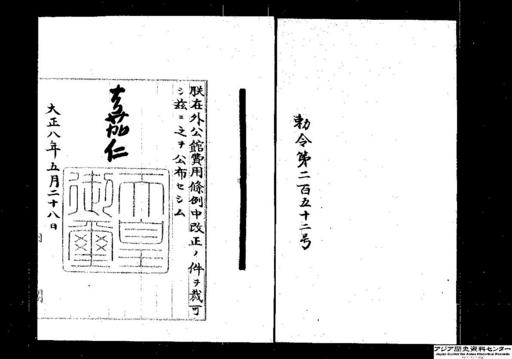 勅令第二百五十二号
朕在外公館費用條例中改正ノ件ヲ裁可
シ茲ニ之ヲ公布セシム
嘉仁
天皇御璽
大正八年五月二十八日
アジア歴史資料センター
Japan Center for Asian Historical Records